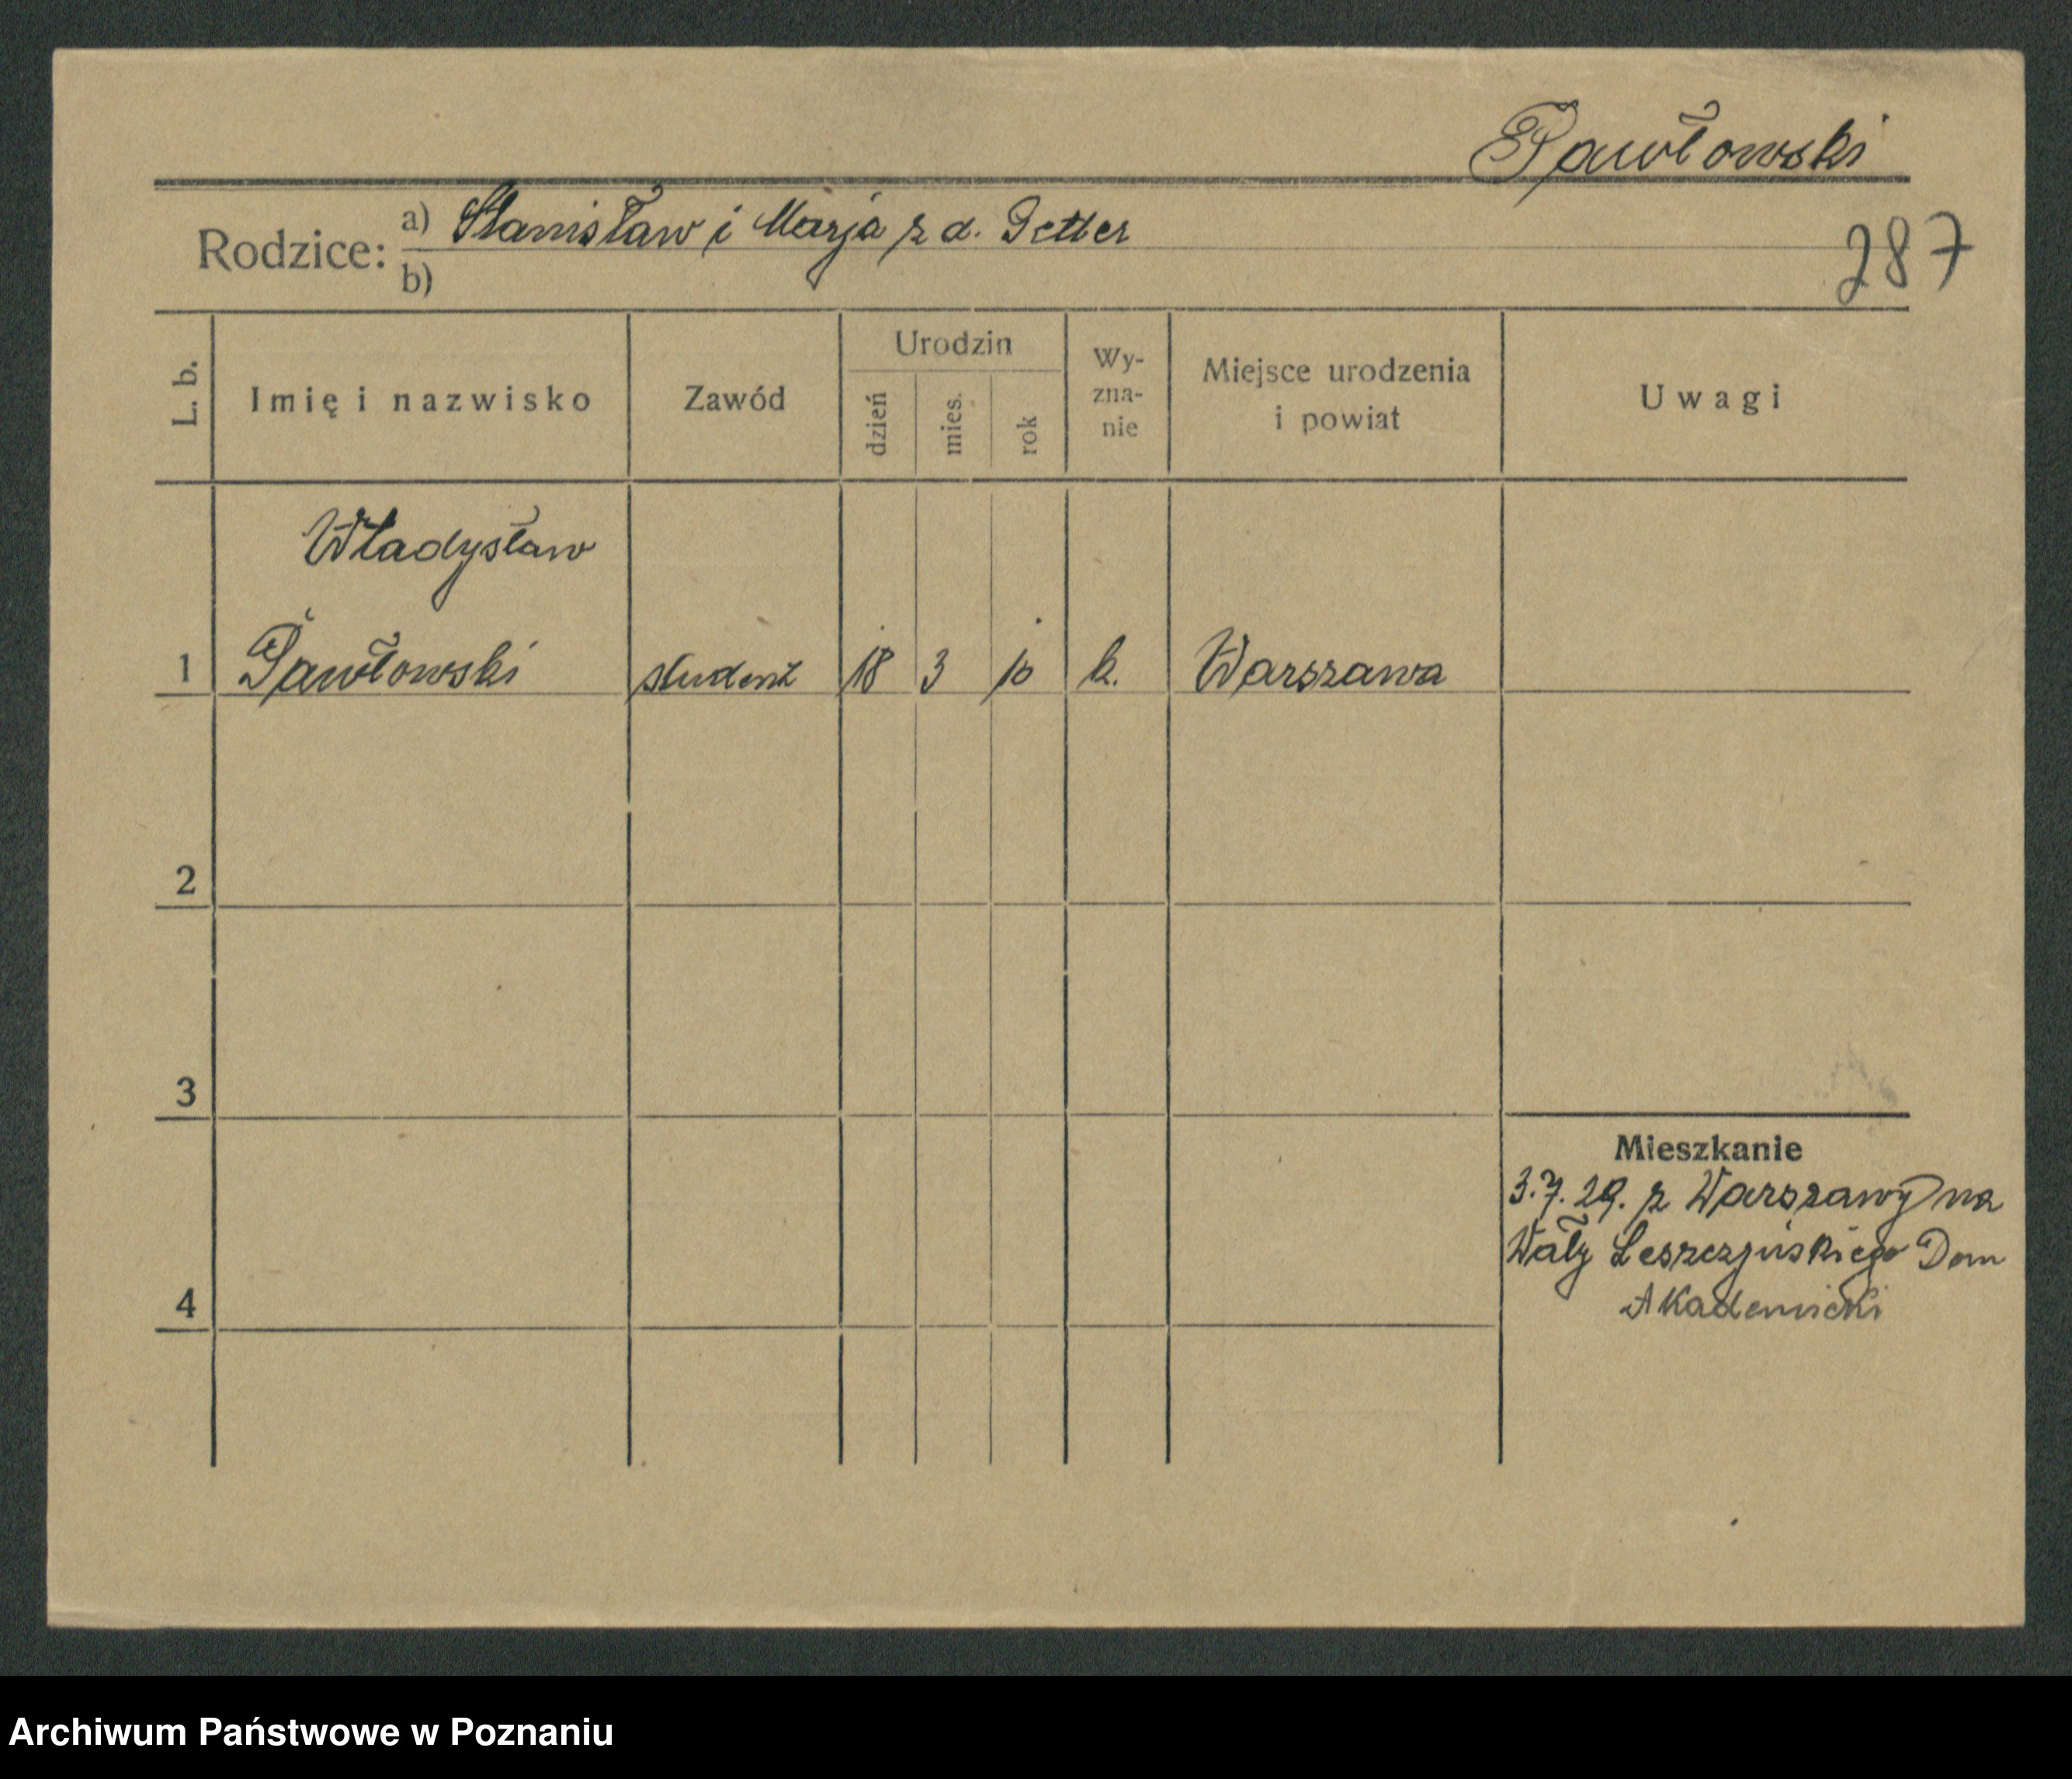 Pawłowski
Rodzice: a) Stanisław i Marja z d. Getter
b)
287
L. b.
Imię i nazwisko
Zawód
Urodzin
dzień
mies.
rok
Wy-
zna-
nie
Miejsce urodzenia
i powiat
Uwagi
Władysław
1 Pawłowski student 18 3 10 k. Warszawa
2
3
Mieszkanie
3.7.29. z Warszawy na
Wały Leszczyńskiego Dom
Akademicki
4
Archiwum Państwowe w Poznaniu